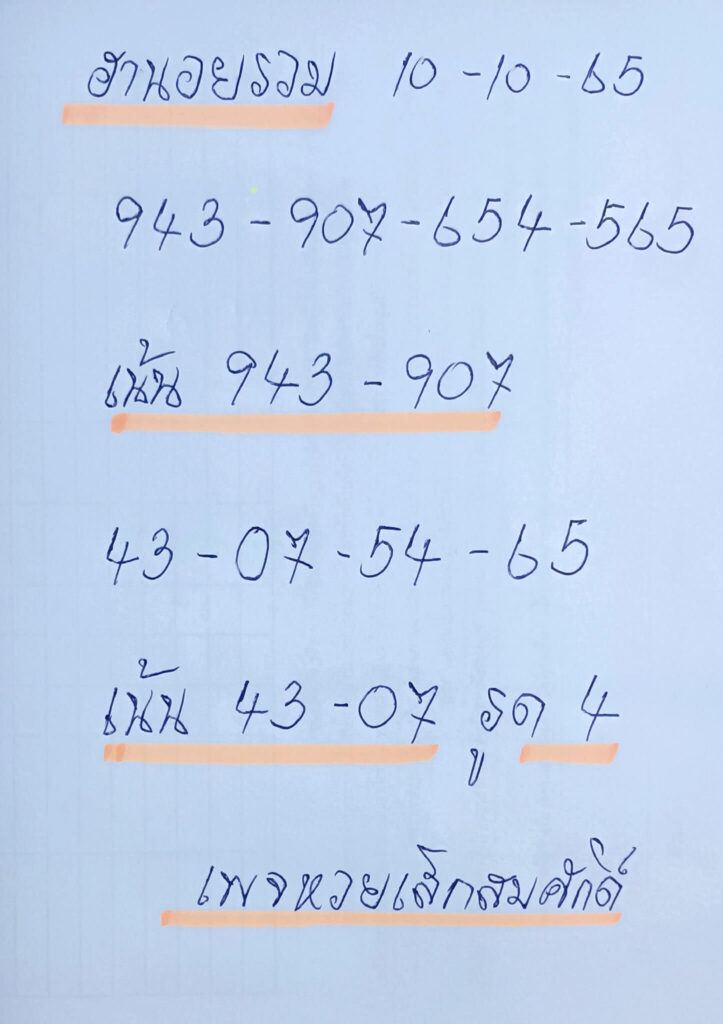 ฮานอยรวม 10-10-65
943-907-654-565
เน้น 943-907
43-07-54-65
เน้น 43-07 รูด 4
เพจหวยเล็กสมศักดิ์